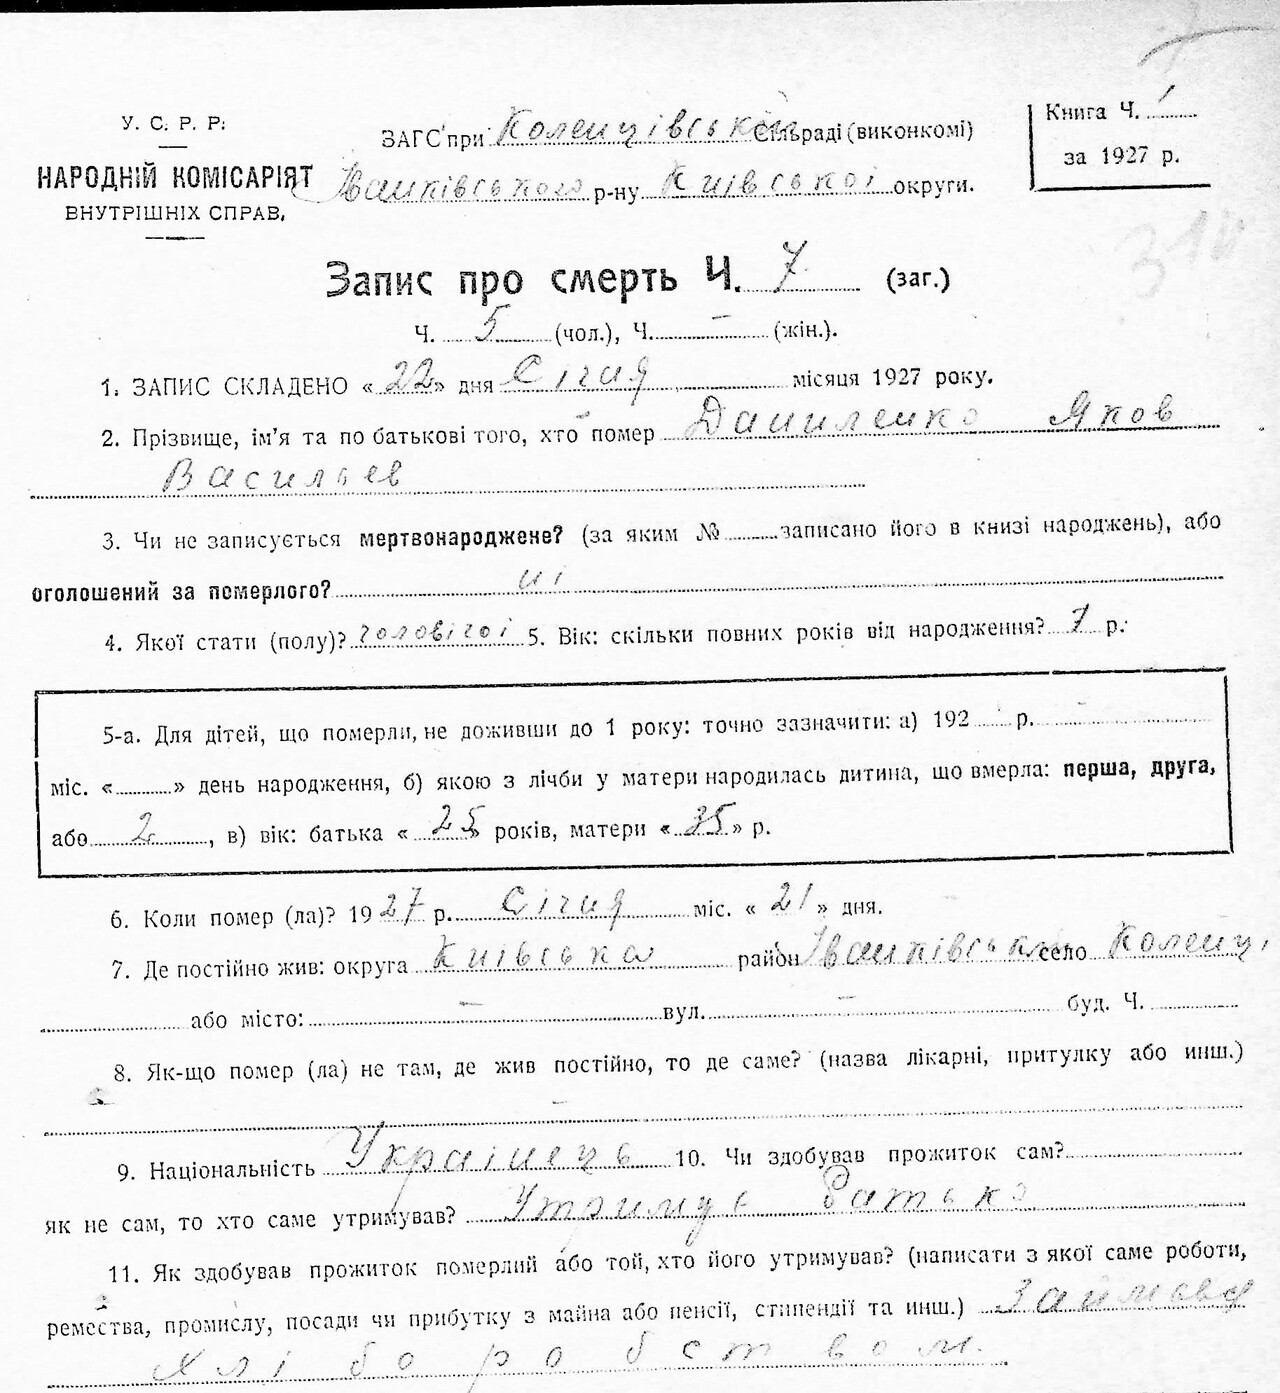 У. С. Р. Р.
НАРОДНІЙ КОМІСАРІЯТ
ВНУТРІШНІХ СПРАВ.
ЗАГС при Коленцівській сільраді (виконкомі)
Іванківського р-ну Київської округи.
Книга Ч. 1
за 1927 р.
310
Запис про смерть Ч. 7 (заг.)
Ч. 5 (чол.), Ч. – (жін.).
1. ЗАПИС СКЛАДЕНО «22» дня Січня місяця 1927 року.
2. Прізвище, ім'я та по батькові того, хто помер Даниленко Яков
Васильев
3. Чи не записується мертвонароджене? (за яким № записано його в книзі народжень), або
оголошений за померлого? ні
4. Якої стати (полу)? чоловічої 5. Вік: скільки повних років від народження? 7 р.
5-а. Для дітей, що померли, не доживши до 1 року: точно зазначити: а) 192 р. –
міс. « » день народження, б) якою з лічби у матери народилась дитина, що вмерла: перша, друга,
або 2, в) вік: батька «25» років, матери «35» р.
6. Коли помер (ла)? 1927 р. Січня міс. «21» дня.
7. Де постійно жив: округа Київська район Іванківський село Коленці
або місто: – вул. – буд. Ч.
8. Як-що помер (ла) не там, де жив постійно, то де саме? (назва лікарні, притулку або инш.)
–
9. Національність Украінець 10. Чи здобував прожиток сам?
як не сам, то хто саме утримував? Утримує батько
11. Як здобував прожиток померлий або той, хто його утримував? (написати з якої саме роботи,
ремества, промислу, посади чи прибутку з майна або пенсії, стипендії та инш.) Займався
хліборобством.